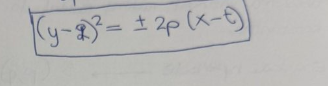 (y-q)² = ± 2p (x-t)